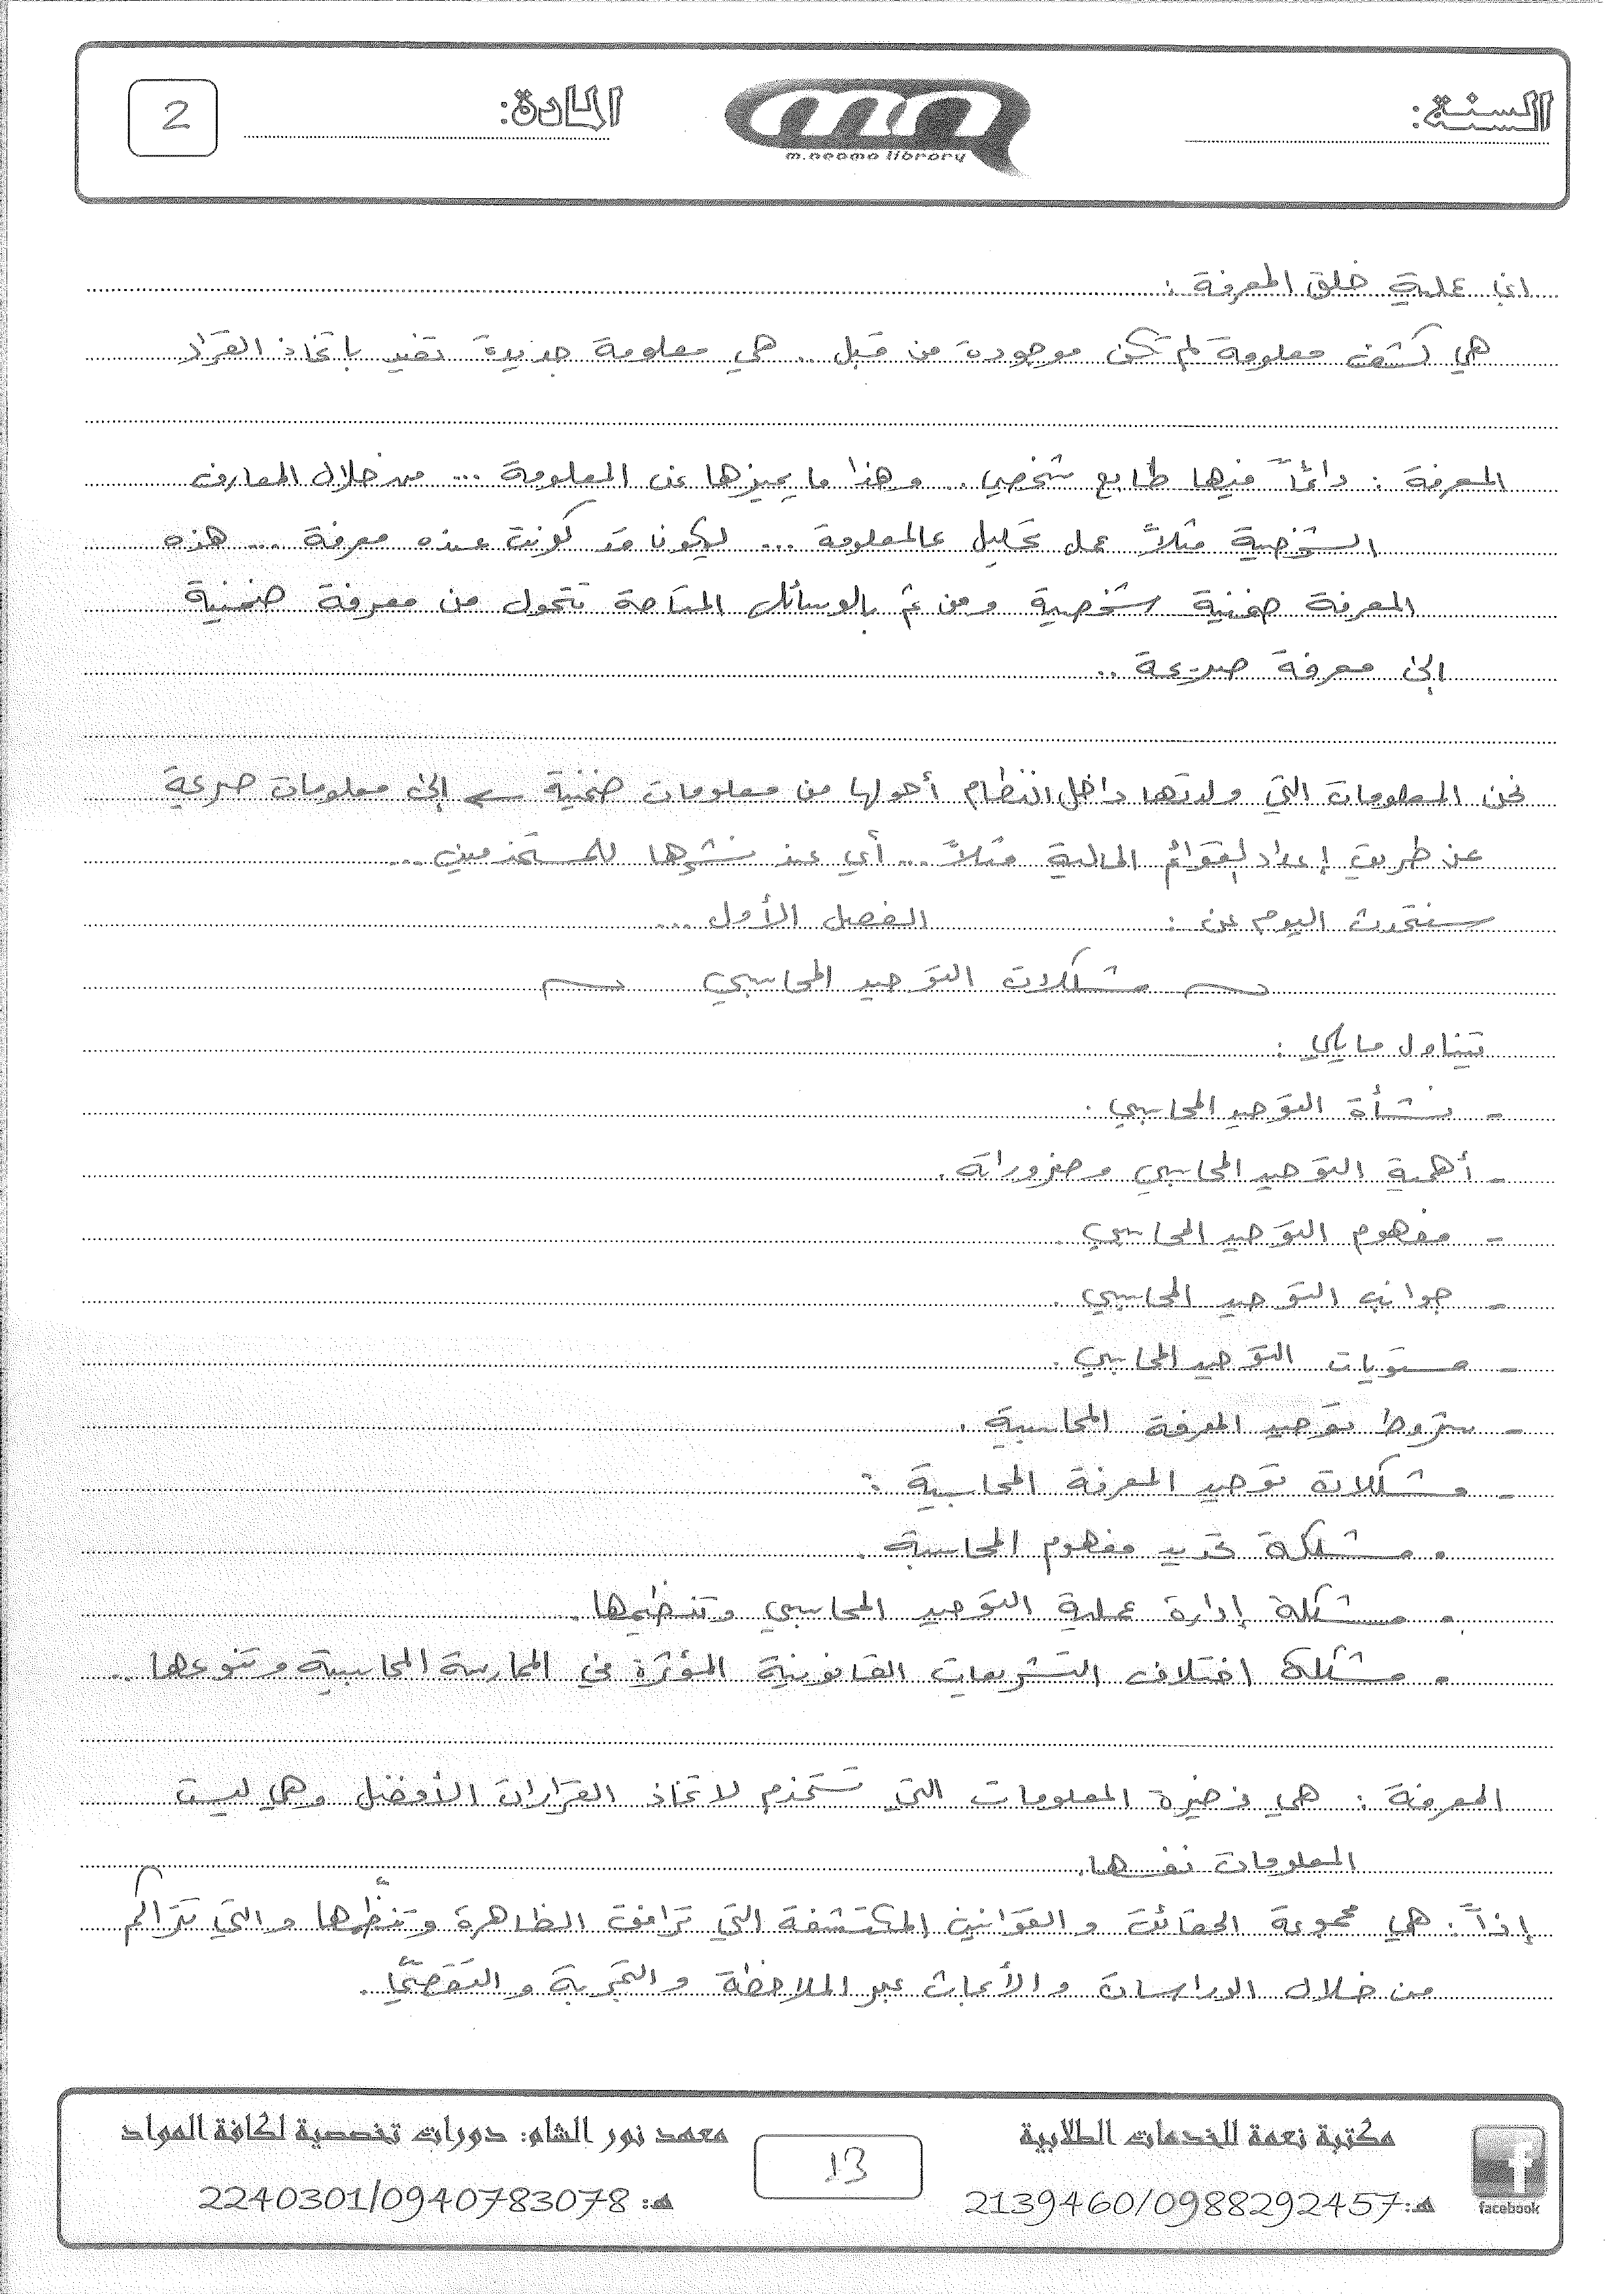 السنة:
m.neoma library
المادة:
2
اما عملية خلق المعرفة :
هي كشف معلومة لم تكن موجودة من قبل .. هي معلومة جديدة تفيد باتخاذ القرار
المعرفة : دائماً فيها طابع شخصي .. وهذا ما يميزها عن المعلومة ... من خلال المعارف
الشخصية مثلاً عمل تحليل عالمعلومة ... ليكونا قد كونت عنده معرفة ... هذه
المعرفة ضمنية شخصية ومن ثم بالوسائل المتاحة تتحول من معرفة ضمنية
إلى معرفة صريحة ..
نحن المعلومات التي ولدتها داخل النظام أحولها من معلومات ضمنية ← إلى معلومات صريحة
عن طريق إعداد القوائم المالية مثلاً ... أي عند نشرها للمستخدمين ...
سنتحدث اليوم عن : الفصل الأول ...
مشكلات التوحيد المحاسبي
تتناول ما يلي :
- نشأة التوحيد المحاسبي .
- أهمية التوحيد المحاسبي وضروراته .
- مفهوم التوحيد المحاسبي .
- جوانب التوحيد المحاسبي .
- مستويات التوحيد المحاسبي .
- شروط توحيد المعرفة المحاسبية .
- مشكلات توحيد المعرفة المحاسبية :
• مشكلة تحديد مفهوم المحاسبة .
• مشكلة إدارة عملية التوحيد المحاسبي وتنظيمها .
• مشكلة اختلاف التشريعات القانونية المؤثرة في الممارسة المحاسبية وتنوعها ..
المعرفة : هي ذخيرة المعلومات التي تستخدم لاتخاذ القرارات الأفضل وهي ليست
المعلومات نفسها .
إذاً : هي مجموعة الحقائق والقوانين المكتشفة التي ترافق الظاهرة وتنظّمها والتي تتراكم
من خلال الدراسات والأبحاث عبر الملاحظة والتجربة والتقصّي .
مكتبة نعمة للخدمات الطلابية
هـ: 2139460/0988292457
facebook
13
معهد نور الشام: دورات تخصصية لكافة المواد
هـ: 2240301/0940783078